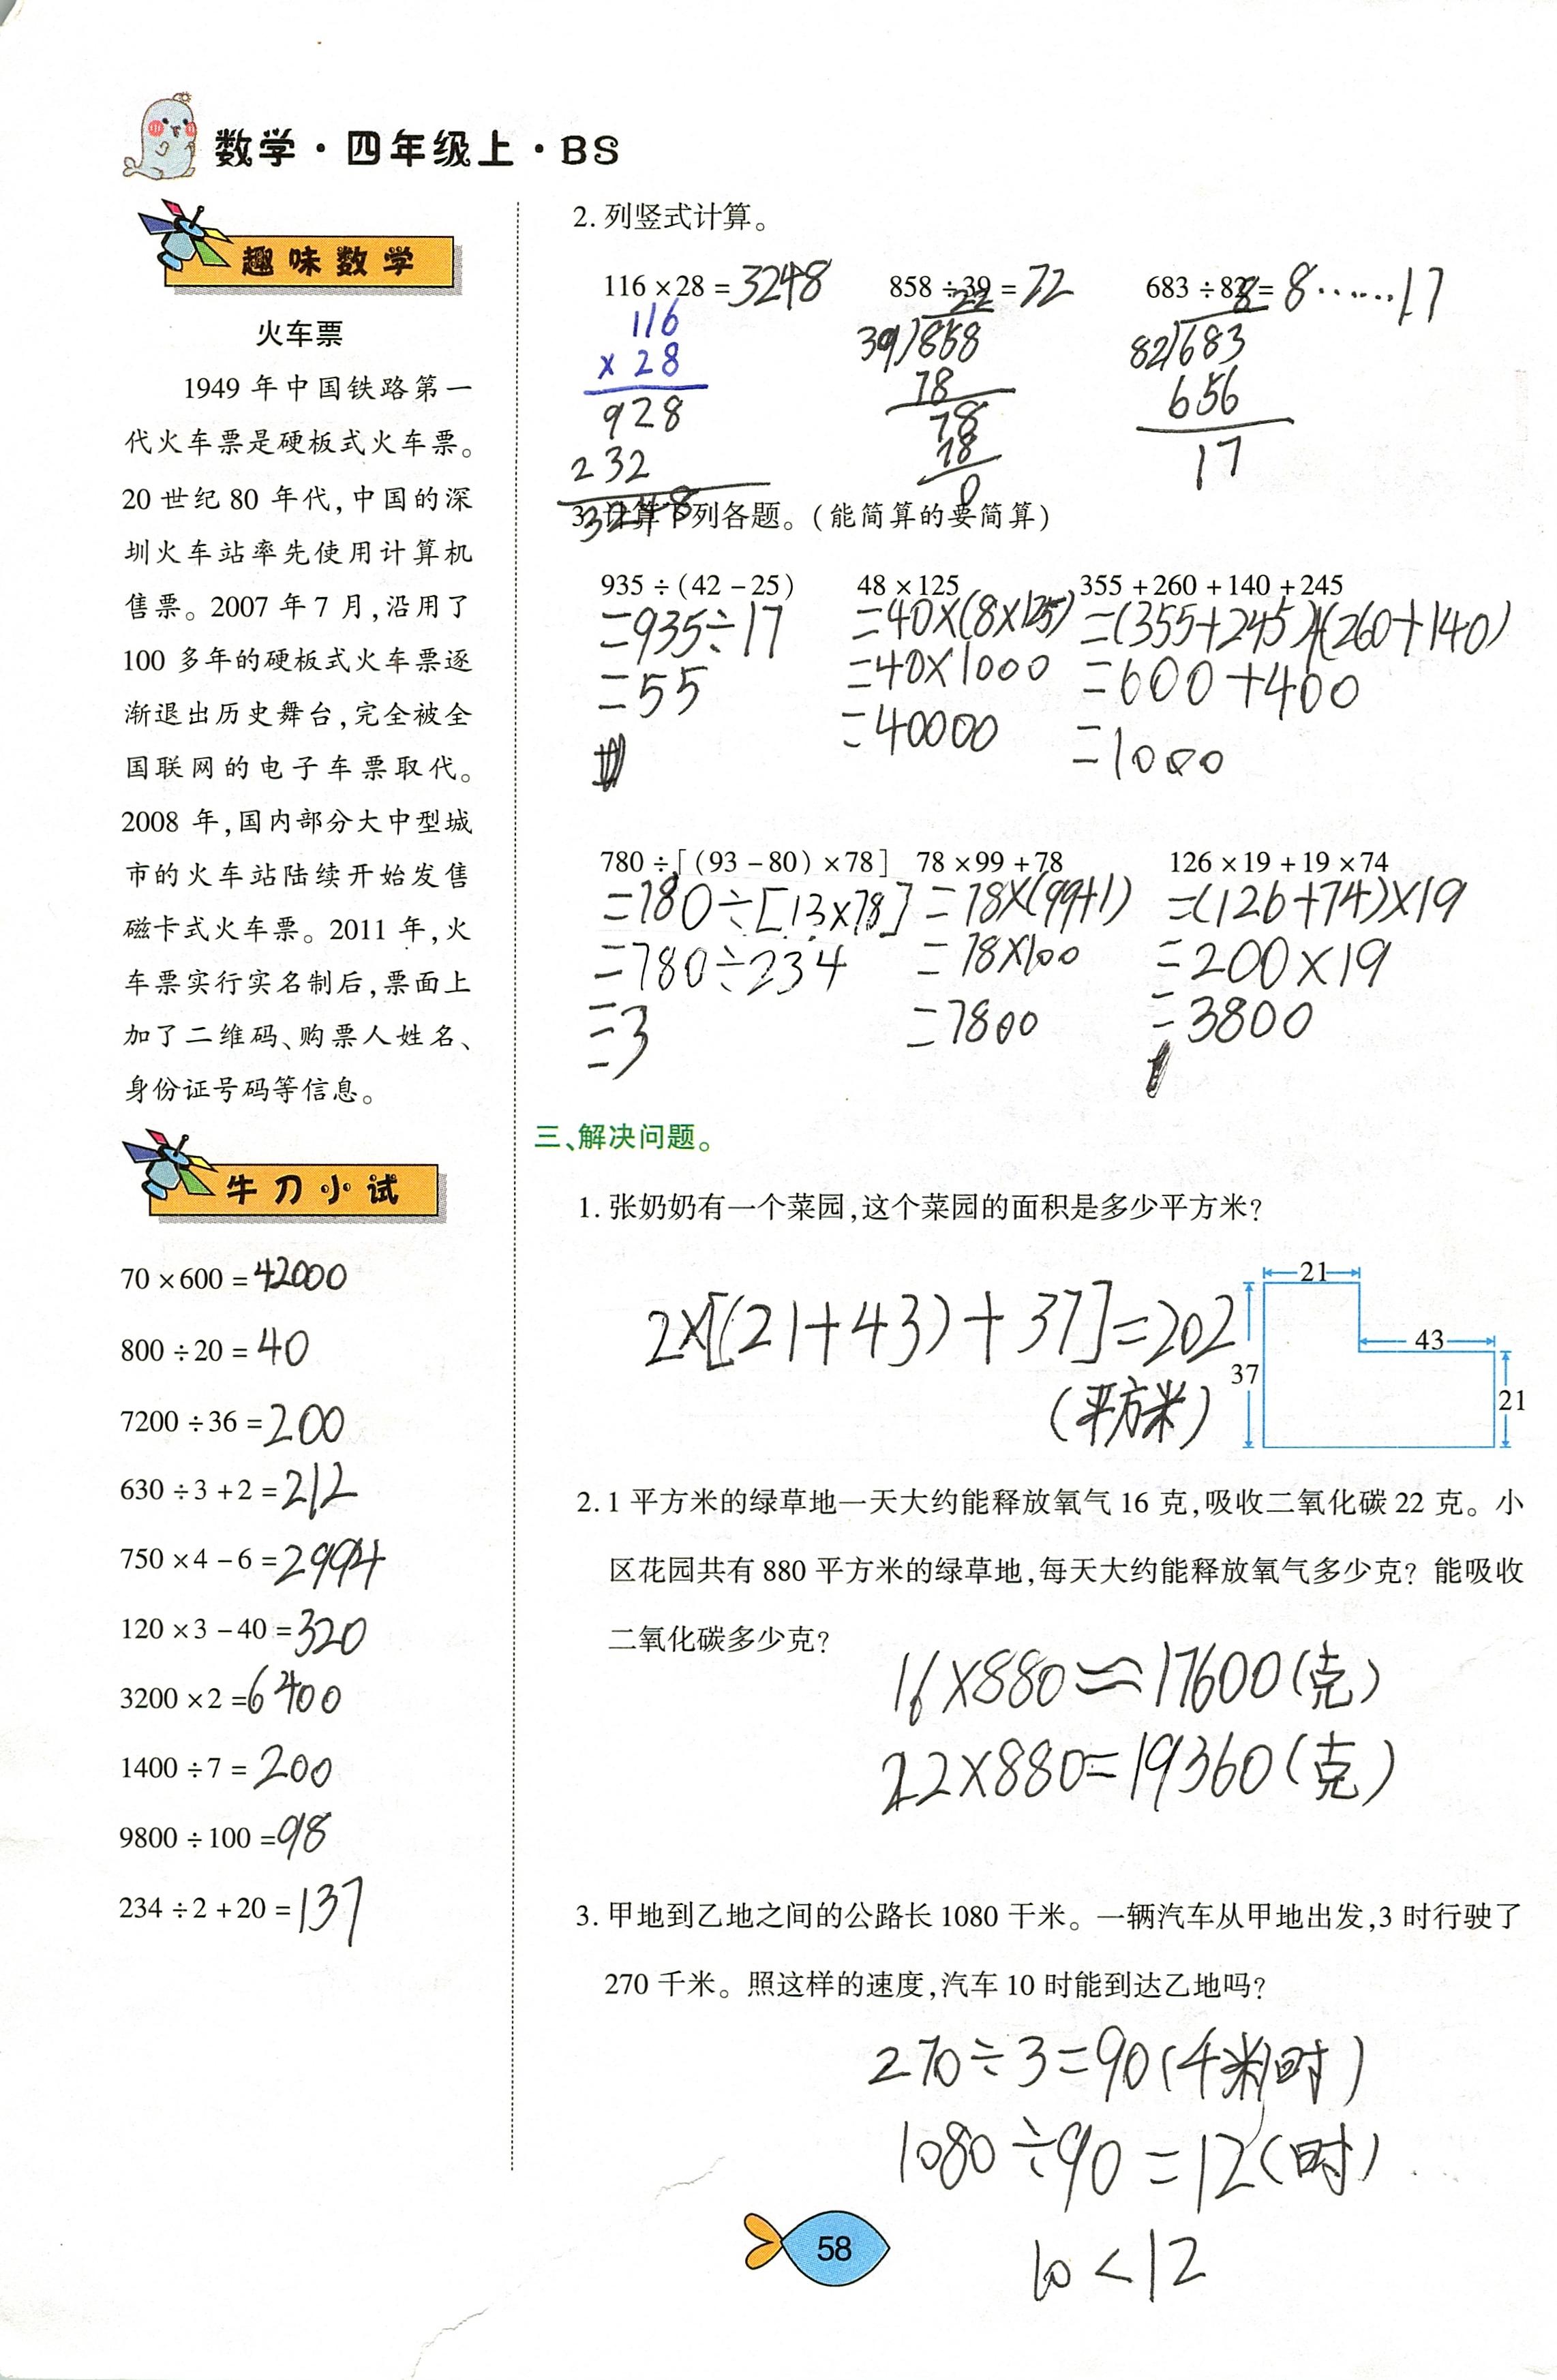 数学·四年级上·BS
趣味数学
火车票
1949 年中国铁路第一
代火车票是硬板式火车票。
20 世纪 80 年代,中国的深
圳火车站率先使用计算机
售票。2007 年 7 月,沿用了
100 多年的硬板式火车票逐
渐退出历史舞台,完全被全
国联网的电子车票取代。
2008 年,国内部分大中型城
市的火车站陆续开始发售
磁卡式火车票。2011 年,火
车票实行实名制后,票面上
加了二维码、购票人姓名、
身份证号码等信息。
牛刀小试
70×600=42000
800÷20=40
7200÷36=200
630÷3+2=212
750×4-6=2994
120×3-40=320
3200×2=6400
1400÷7=200
9800÷100=98
234÷2+20=137
2. 列竖式计算。
116×28=3248 858÷39=22 683÷82=8……17
116
×28
928
232
3248
22
39)858
78
78
78
0
8
82)683
656
17
3. 计算下列各题。(能简算的要简算)
935÷(42-25) 48×125 355+260+140+245
=935÷17 =40×(8×125) =(355+245)+(260+140)
=55 =40×1000 =600+400
=40000 =1000
780÷[(93-80)×78] 78×99+78 126×19+19×74
=780÷[13×78] =78×(99+1) =(126+74)×19
=780÷234 =78×100 =200×19
=3 =7800 =3800
三、解决问题。
1. 张奶奶有一个菜园,这个菜园的面积是多少平方米?
2×[(21+43)+37]=202
(平方米)
21
43
37
21
2. 1 平方米的绿草地一天大约能释放氧气 16 克,吸收二氧化碳 22 克。小
区花园共有 880 平方米的绿草地,每天大约能释放氧气多少克? 能吸收
二氧化碳多少克?
16×880≈17600(克)
22×880=19360(克)
3. 甲地到乙地之间的公路长 1080 千米。一辆汽车从甲地出发,3 时行驶了
270 千米。照这样的速度,汽车 10 时能到达乙地吗?
270÷3=90(千米/时)
1080÷90=12(时)
10<12
58